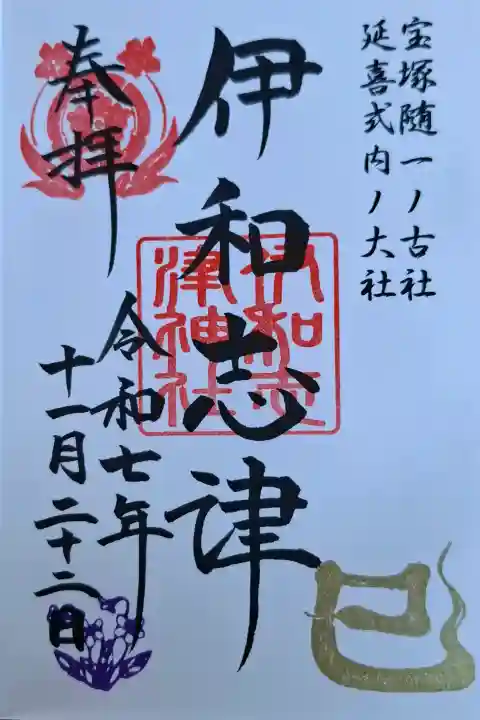 宝塚随一ノ古社
延喜式内ノ大社
伊和志津
伊和志
津神社
奉拝
令和七年
十一月二十二日
巳